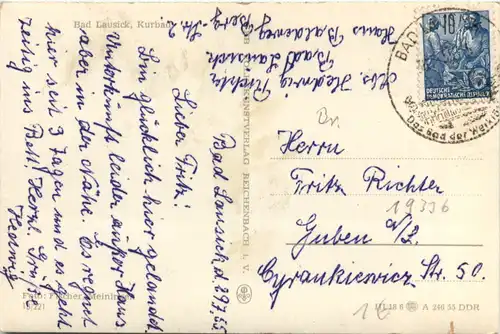 Bad Lausick, Kurbad
Abs. Hedwig Richter
Bad Lausick
Hans Baldeweg
Berg-Str. 2.
Bad Lausick d. 29.7.55
Lieber Fritz!
Bin glücklich hier gelandet
Unterkunft leider außer Haus
aber in der Nähe. Es regnet
hier seit 3 Tagen und es geht
zeitig ins Bett. Herzl. Grüße
Hedwig
Foto: Fischer, Meiningen
KUNSTVERLAG REICHENBACH I. V.
BAD
Das Bad der
DEUTSCHE
DEMOKRATISCHE REPUBLIK
Herrn
Fritz Richter
19336
Guben a/N.
Cyrankiewicz Str. 50.
A 246 55 DDR
1€